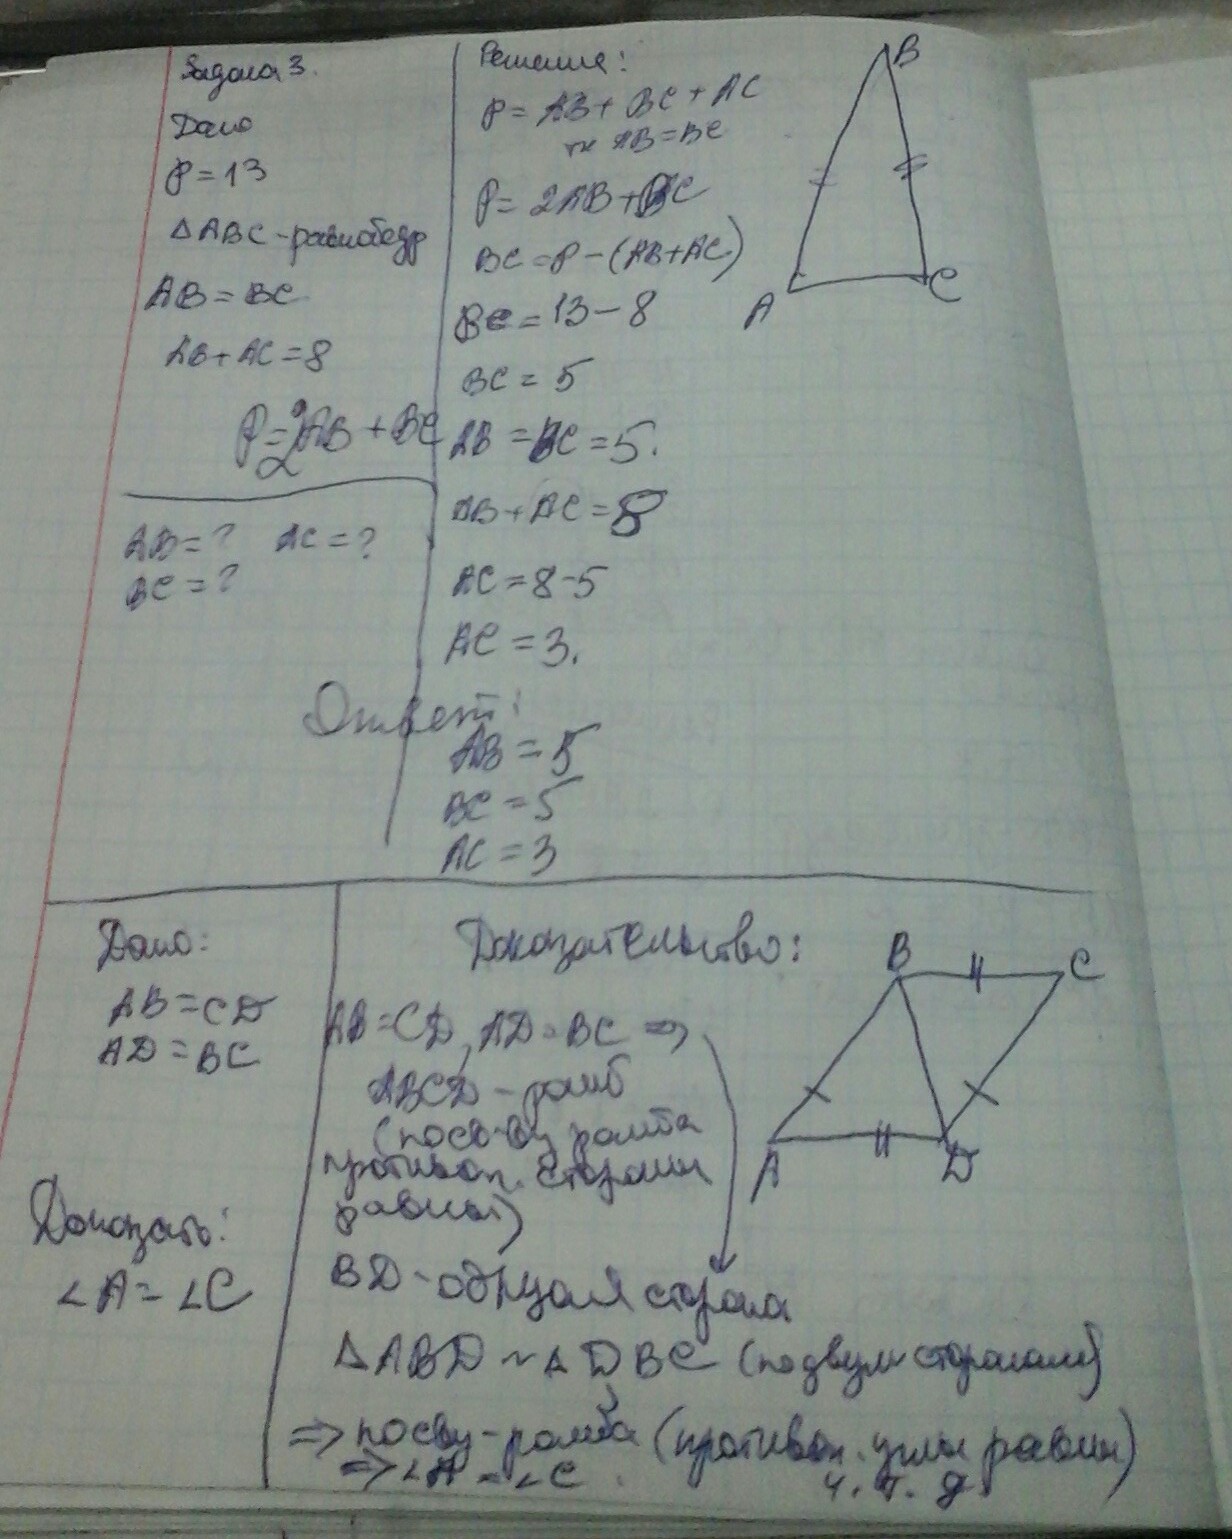 Задача 3.
Дано
P = 13
Δ ABC - равнобедр
AB = BC
AB + AC = 8
P = 2AB + BC
2
AB = ? AC = ?
BC = ?
Решение:
P = AB + BC + AC
тк AB = BC
P = 2AB + BC
BC = P - (AB + AC)
BC = 13 - 8
BC = 5
AB = BC = 5.
AB + AC = 8
AC = 8 - 5
AC = 3.
Ответ:
AB = 5
BC = 5
AC = 3
B
A
C
Дано:
AB = CD
AD = BC
Доказать:
∠A = ∠C
Доказательство:
AB = CD, AD = BC ⇒
ABCD - ромб
(по св-ву ромба
противоп. стороны
равны)
BD - общая сторона
Δ ABD ~ Δ DBC (по двум сторонам)
⇒ по св ву - ромба (противоп. углы равны)
⇒ ∠A = ∠C.
ч. т. д.
B
C
A
D